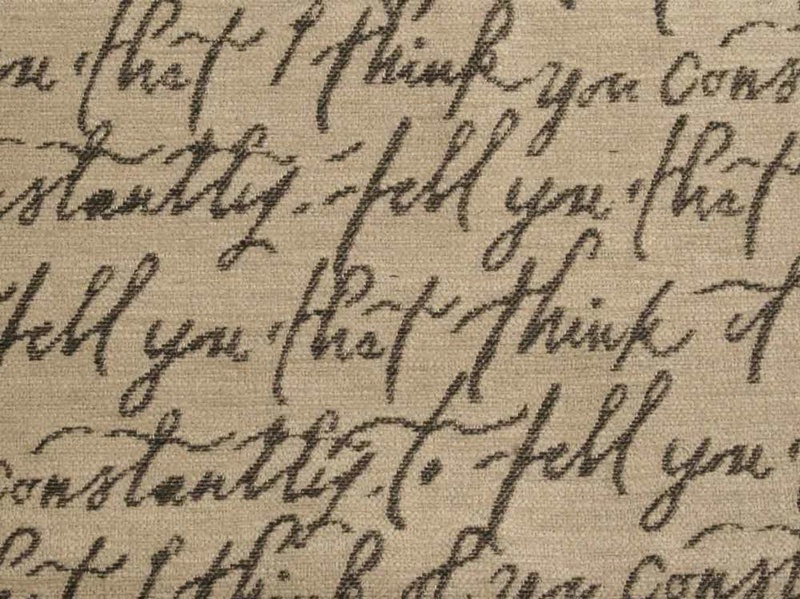 you that I think you cons
stantly. tell you that
tell you that think of
constantly. to tell you
that I think of you const